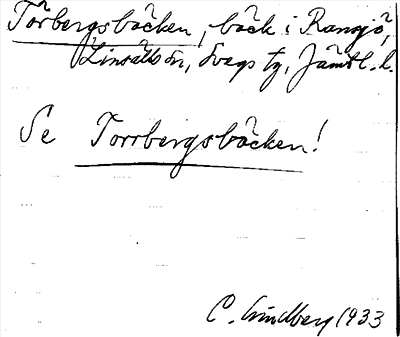 Torbergsbäcken, bäck i Ransjö,
Linsälls sn, Svegs tg, Jämtl. l.
Se Torrbergsbäcken!
C. Lindberg 1933